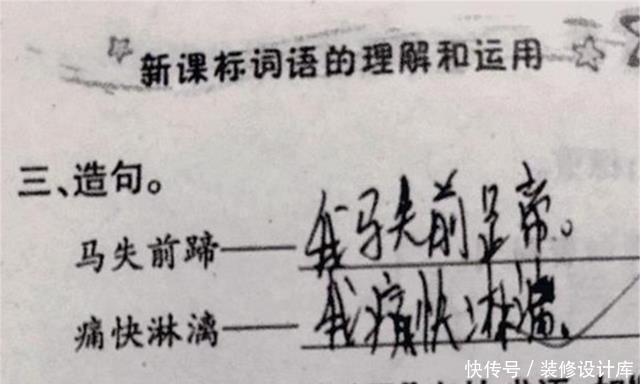 新课标词语的理解和运用
三、造句。
马失前蹄——我马失前蹄。
痛快淋漓——我痛快淋漓。
快传号／装修设计库